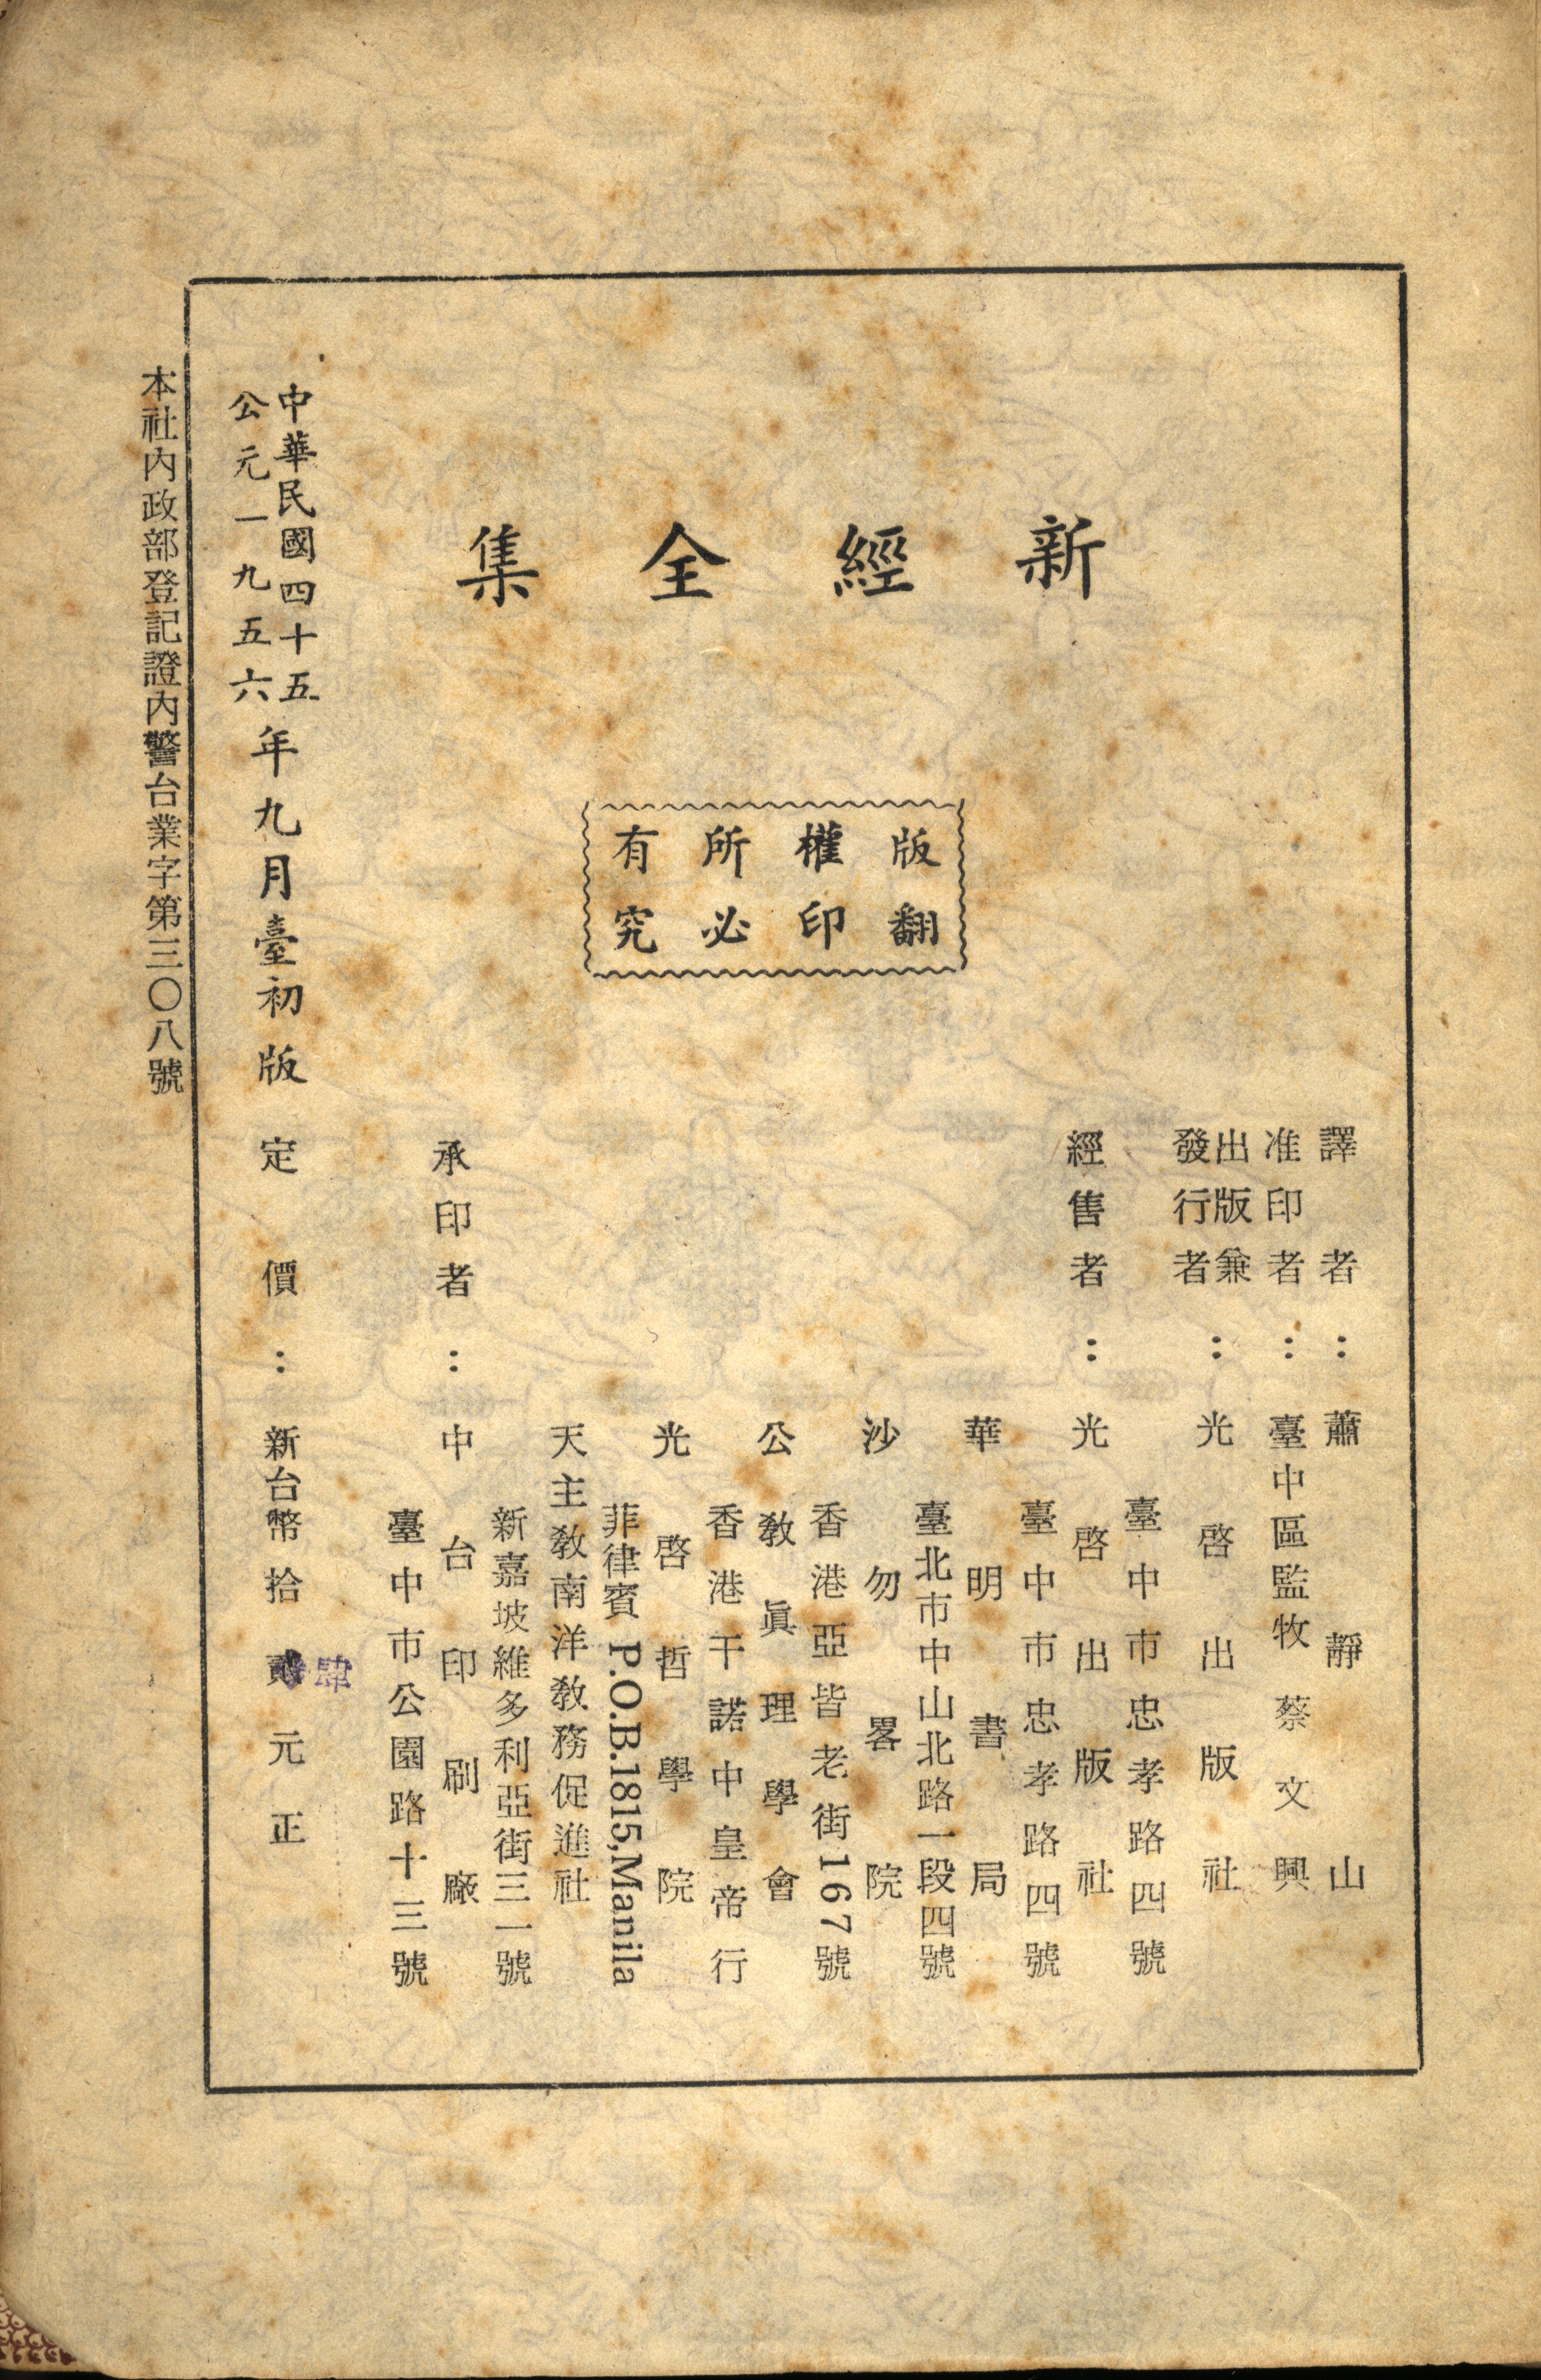 新經全集
版權所有
翻印必究
譯者：蕭靜山
准印者：臺中區監牧 蔡文興
出版兼
發行者：光啓出版社
臺中市忠孝路四號
經售者：光啓出版社
臺中市忠孝路四號
華明書局
臺北市中山北路一段四號
沙勿畧院
香港亞皆老街167號
公敎眞理學會
香港干諾中皇帝行
光啓哲學院
菲律賓 P.O.B.1815,Manila
天主敎南洋敎務促進社
新嘉坡維多利亞街三一號
承印者：中台印刷廠
臺中市公園路十三號
肆
定價：新台幣拾貳元正
中華民國四十五
公元一九五六
年九月臺初版
本社内政部登記證内警台業字第三〇八號